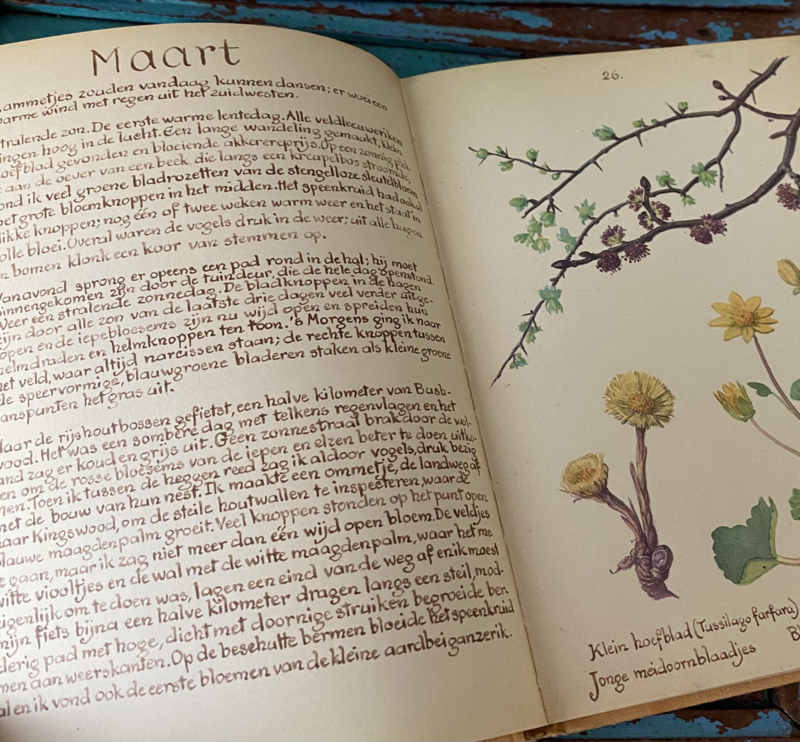 Maart
ammetjes zouden vandaag kunnen dansen; er woei een
arme wind met regen uit het zuidwesten.
tralende zon. De eerste warme lentedag. Alle veldleeuweriken
ingen hoog in de lucht. Een lange wandeling gemaakt, klein
oefblad gevonden en bloeiende akkerereprijs. Op een zonnig
aan de oever van een beek, die langs een kreupelbos stroomde,
ond ik veel groene bladrozetten van de stengelloze sleutelbloem
met grote bloemknoppen in het midden. Het speenkruid had ook al
ikke knoppen; nog één of twee weken warm weer en het staat in
olle bloei. Overal waren de vogels druk in de weer; uit alle hagen
n bomen klonk een koor van stemmen op.
Vanavond sprong er opeens een pad rond in de hal; hij moet
innengekomen zijn door de tuindeur, die de hele dag openstond.
Weer een stralende zonnedag. De bladknoppen in de hagen
ijn door alle zon van de laatste drie dagen veel verder uitge-
open en de iepebloesems zijn nu wijd open en spreiden hun
elmdraden en helmknoppen ten toon. 's Morgens ging ik naar
et veld, waar altijd narcissen staan; de rechte knoppen tussen
de speervormige, blauwgroene bladeren staken als kleine groene
anspunten het gras uit.
Naar de rijshoutbossen gefietst, een halve kilometer van Bush-
wood. Het was een sombere dag met telkens regenvlagen en het
and zag er koud en grijs uit. Geen zonnestraal brak door de wol-
en om de rosse bloesems van de iepen en elzen beter te doen uitko-
men. Toen ik tussen de heggen reed zag ik aldoor vogels, druk bezig
met de bouw van hun nest. Ik maakte een ommetje, de landweg af
naar Kingswood, om de steile houtwallen te inspecteren, waar de
blauwe maagdenpalm groeit. Veel knoppen stonden op het punt open
e gaan, maar ik zag niet meer dan één wijd open bloem. De veldjes
witte viooltjes en de wal met de witte maagdenpalm, waar het me
eigenlijk om te doen was, lagen een eind van de weg af en ik moest
mijn fiets bijna een halve kilometer dragen langs een steil, mod-
derig pad met hoge, dicht met doornige struiken begroeide ber-
men aan weerskanten. Op de beschutte bermen bloeide het speenkruid
al en ik vond ook de eerste bloemen van de kleine aardbeiganzerik.
26.
Klein hoefblad (Tussilago farfara)
Jonge meidoornblaadjes Bl